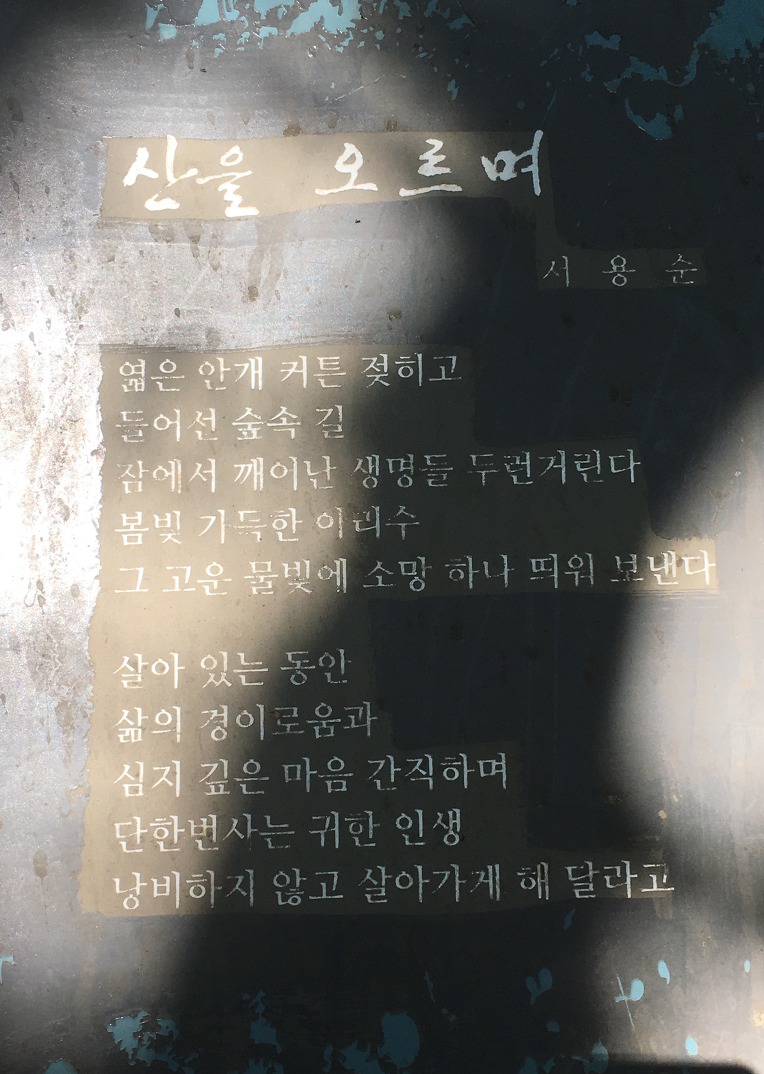 산을 오르며
서용순
엷은 안개 커튼 젖히고
들어선 숲속 길
잠에서 깨어난 생명들 두런거린다
봄빛 가득한 아리수
그 고운 물빛에 소망 하나 띄워 보낸다
살아 있는 동안
삶의 경이로움과
심지 깊은 마음 간직하며
단한번사는 귀한 인생
낭비하지 않고 살아가게 해 달라고